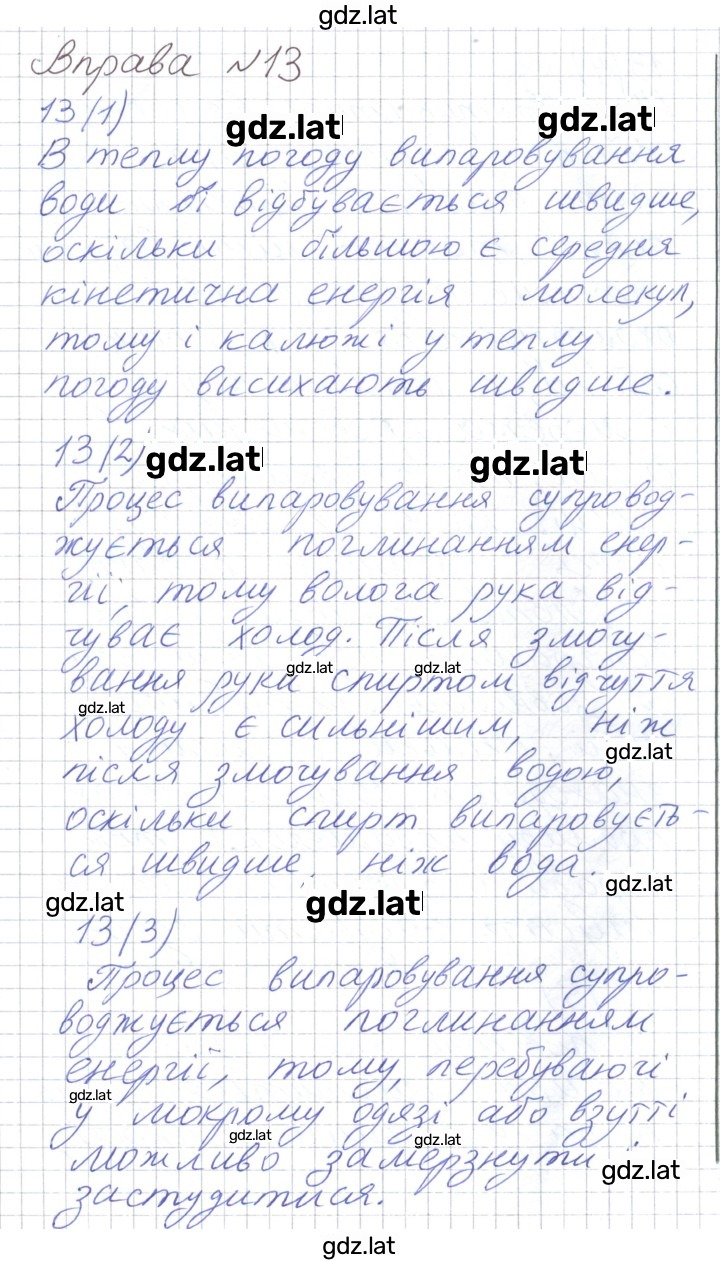 gdz.lat
Вправа №13
13(1)
gdz.lat gdz.lat
В теплу погоду випаровування
води відбувається швидше,
оскільки більшою є середня
кінетична енергія молекул,
тому і калюжі у теплу
погоду висихають швидше.
13(2)
gdz.lat gdz.lat
Процес випаровування супровод-
жується поглинанням енер-
гії, тому волога рука від-
чуває холод. Після змочу-
gdz.lat gdz.lat
вання руки спиртом відчуття
gdz.lat
холоду є сильнішим, ніж
gdz.lat
після змочування водою,
оскільки спирт випаровуєть-
ся швидше, ніж вода.
gdz.lat
gdz.lat gdz.lat
13(3)
Процес випаровування супро-
воджується поглинанням
енергії, тому, перебуваючі
gdz.lat
у мокрому одязі або взутті
gdz.lat gdz.lat
можливо замерзнути і
gdz.lat
застудитися.
gdz.lat